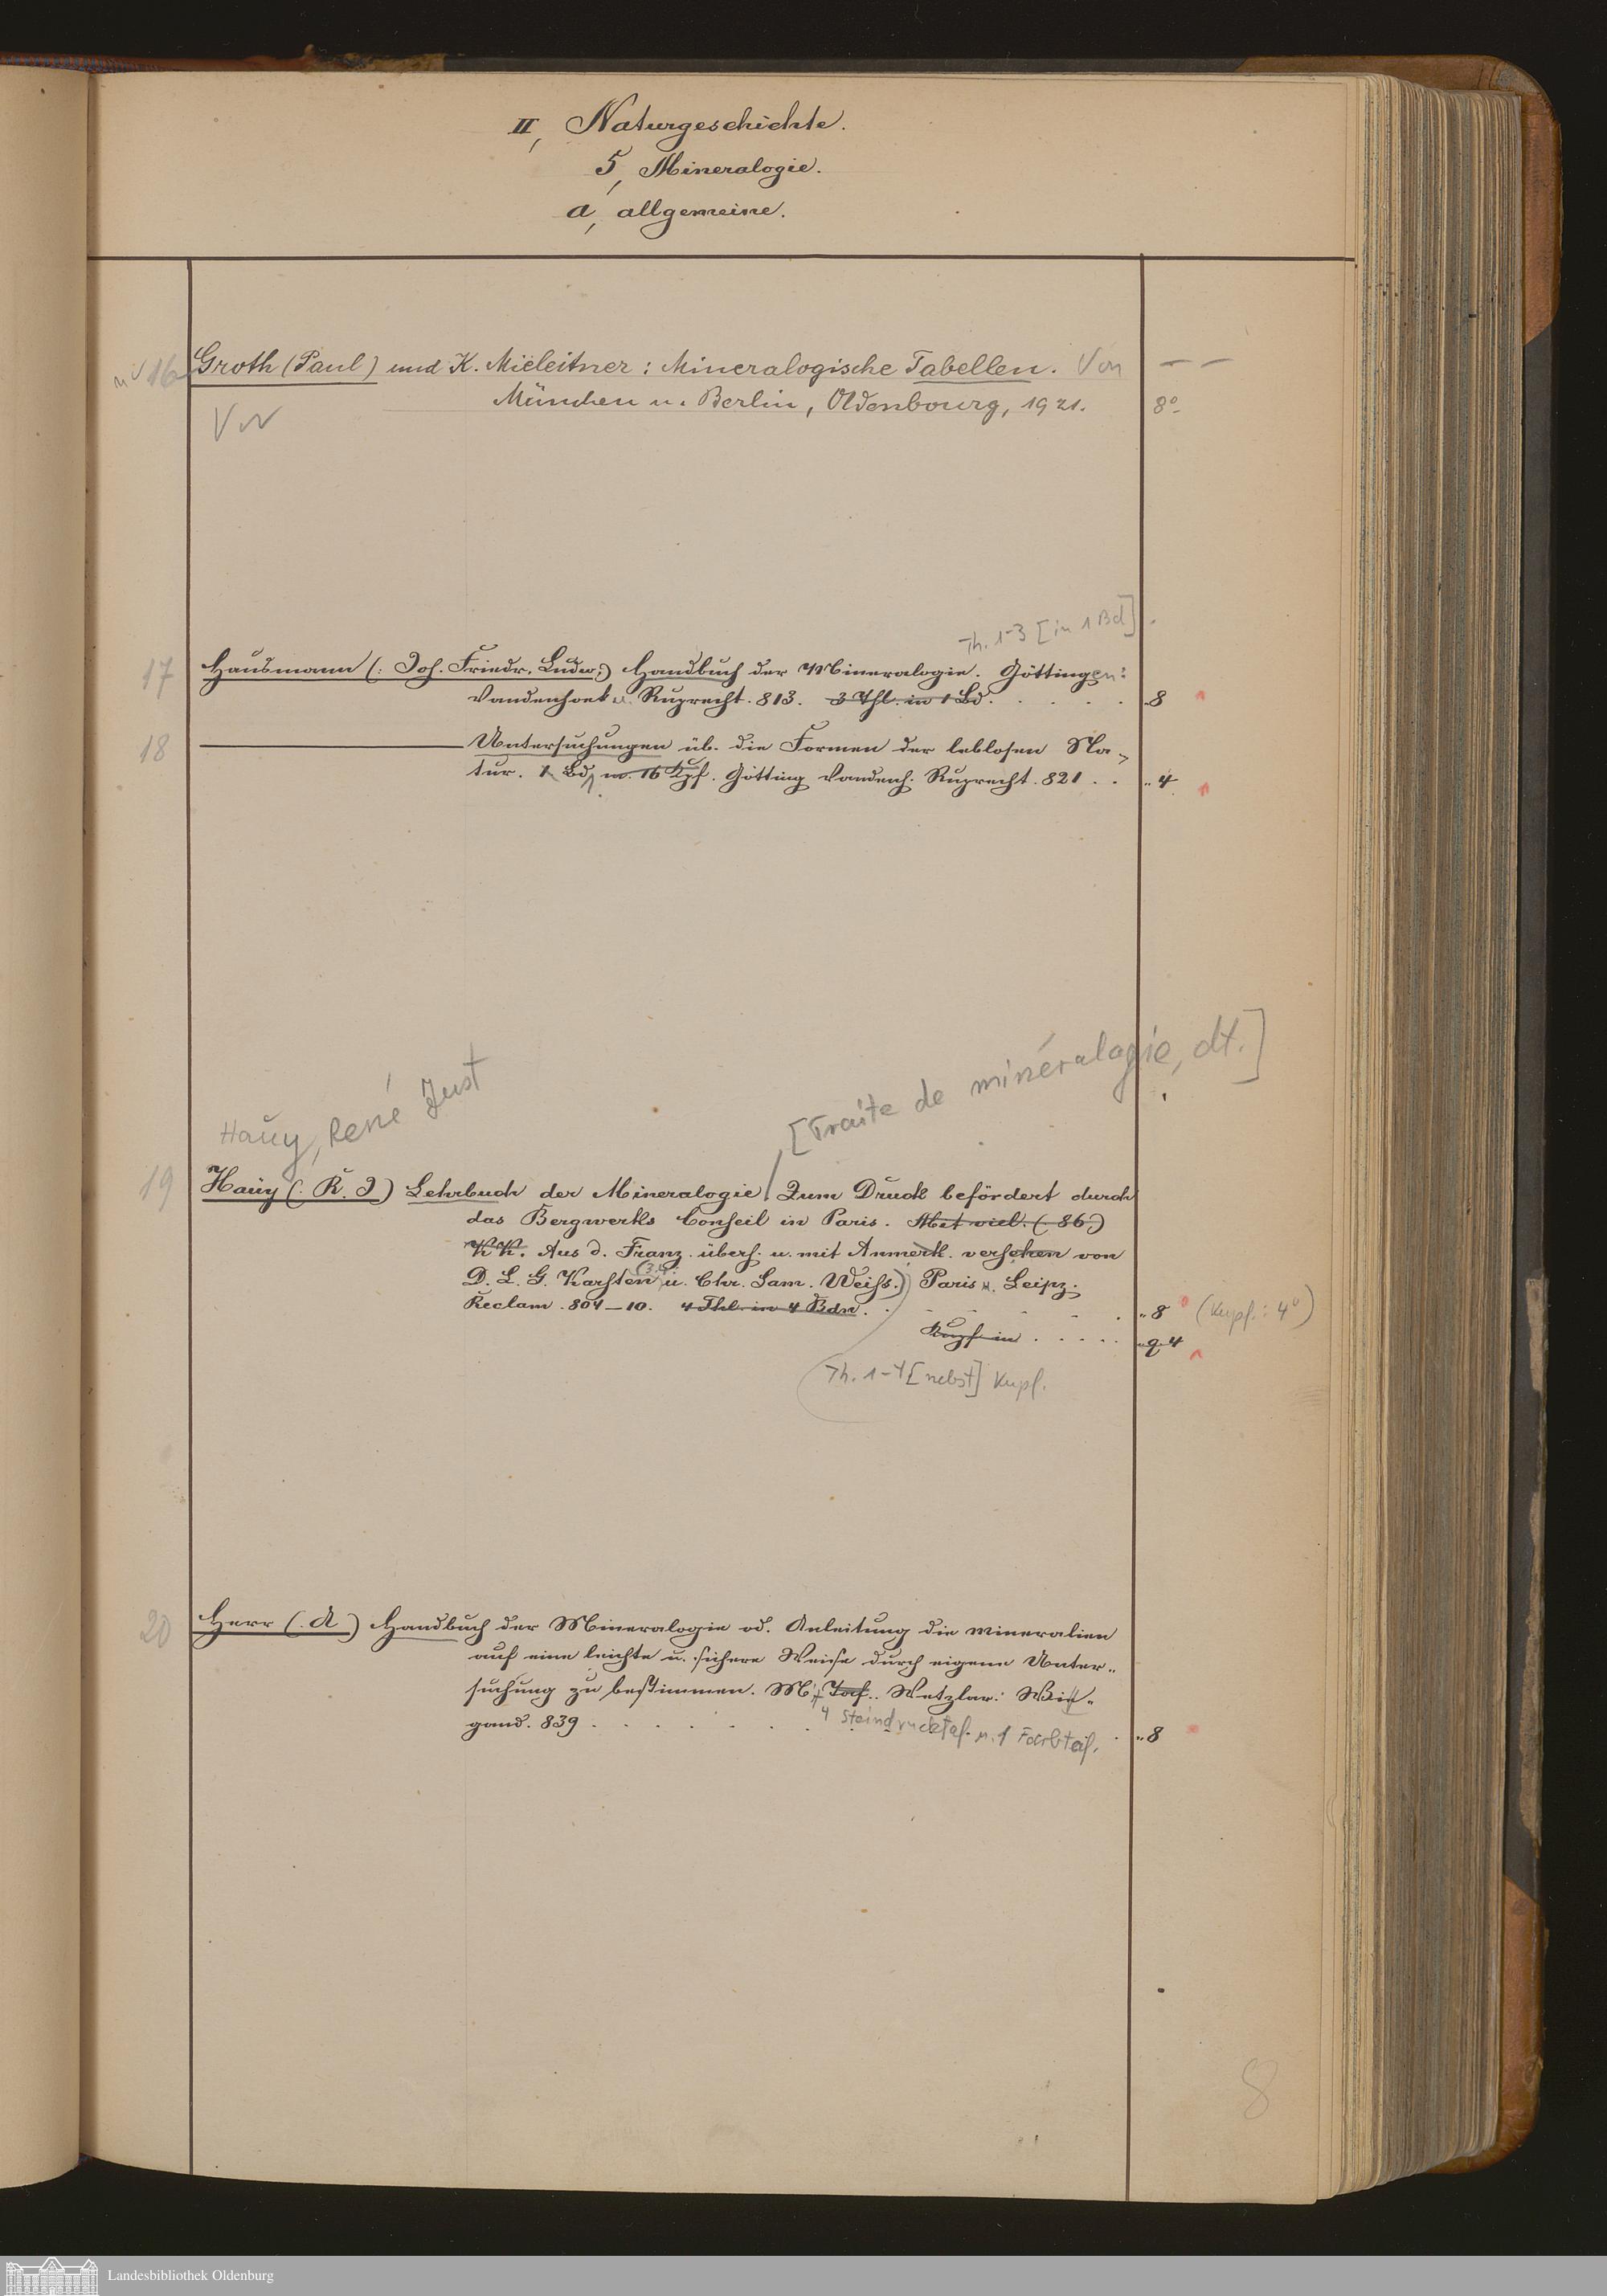 II, Naturgeschichte.
5, Mineralogie.
a, allgemeine.
16 Groth (Paul) und K. Mieleitner: Mineralogische Tabellen. Von — —
München u. Berlin, Oldenbourg, 1921. 8°
Th. 1-3 [in 1 Bd]
17 Hausmann (: Joh. Friedr. Ludw:) Handbuch der Mineralogie. Göttingen:
Vandenhoek u. Ruprecht. 813. 3 Thl. in 1 Bd. . . . . . 8
18 ——— Untersuchungen üb. die Formen der leblosen Na-
tur. 1 Bd m. 16 Kpf. Götting Vandenh. Ruprecht. 821 . . „ 4
[Traite de minéralogie, dt.]
Haüy, René Just
19 Haüy (: R. J) Lehrbuch der Mineralogie / Zum Druck befördert durch
das Bergwerks Conseil in Paris. Mit viel. (: 86:)
KK. Aus d. Franz. übers. u. mit Anmerk. versehen von
D. L. G. Karsten u. Chr. Sam. Weiss.) Paris u. Leipz.
Reclam. 804—10. 4 Thl. in 4 Bdn. . . . . . „ 8 (Kupf.: 4°)
Kupf. in . . . . . q. 4
Th. 1-4 [nebst] Kupf.
20 Herr (: A) Handbuch der Mineralogie od. Anleitung die Mineralien
auf eine leichte u. sichere Weise durch eigene Unter„
suchung zu bestimmen. Mit Taf.. Wetzlar: Wi„
gand. 839 . . . . . . . „ 8
4 Steindrucktaf. u. 1 Farbtaf.
8
Landesbibliothek Oldenburg